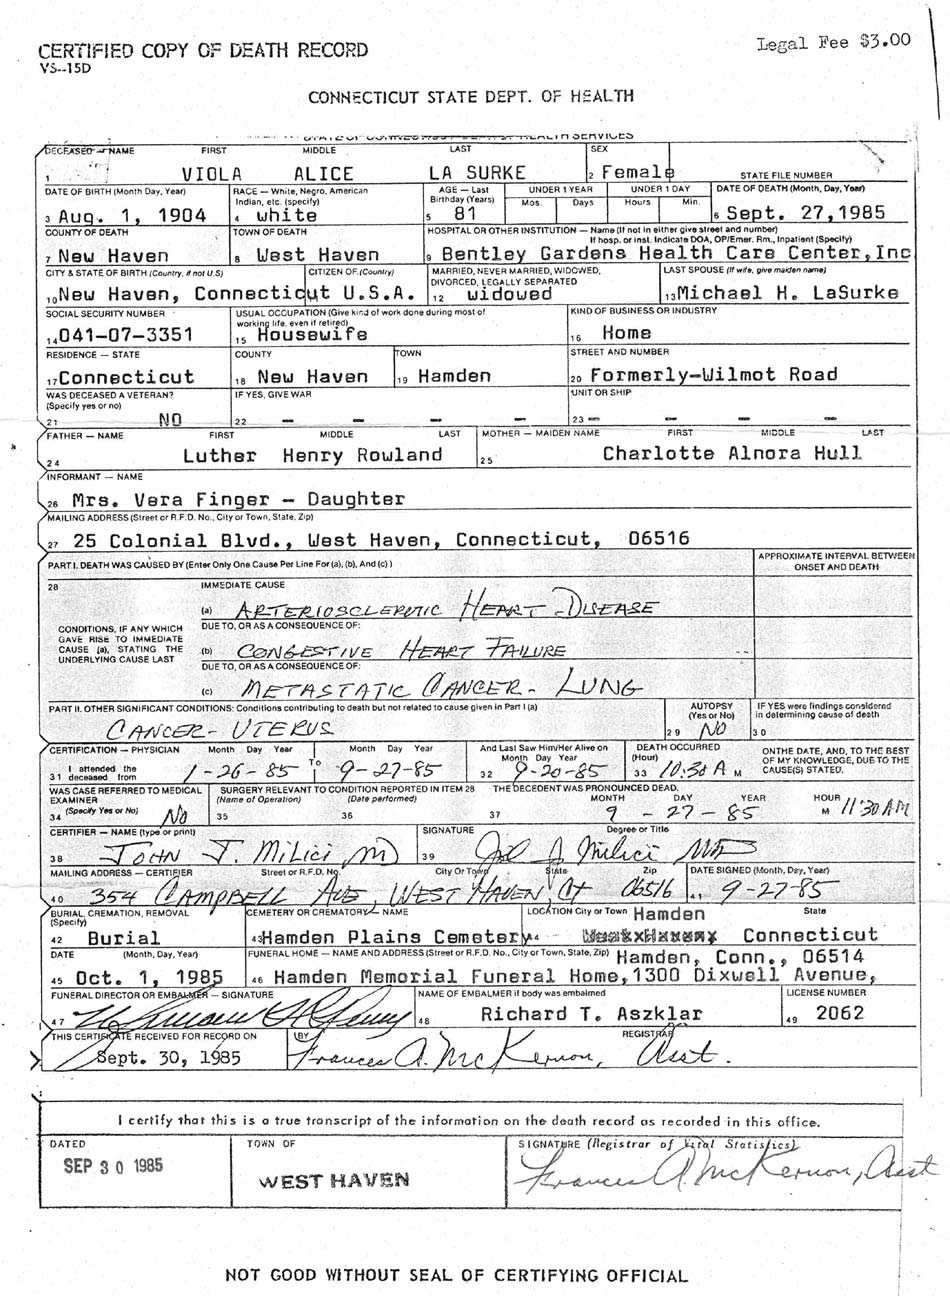 CERTIFIED COPY OF DEATH RECORD
Legal Fee $3.00
VS--15D
CONNECTICUT STATE DEPT. OF HEALTH
HEALTH SERVICES
DECEASED — NAME FIRST MIDDLE LAST SEX
1 VIOLA ALICE LA SURKE 2 Female STATE FILE NUMBER
DATE OF BIRTH (Month Day, Year) RACE — White, Negro, American Indian, etc. (specify) AGE — Last Birthday (Years) UNDER 1 YEAR Mos. Days UNDER 1 DAY Hours Min. DATE OF DEATH (Month, Day, Year)
3 Aug. 1, 1904 4 white 5 81 6 Sept. 27,1985
COUNTY OF DEATH TOWN OF DEATH HOSPITAL OR OTHER INSTITUTION — Name (If not in either give street and number)
If hosp. or inst. Indicate DOA, OP/Emer. Rm., Inpatient (Specify)
7 New Haven 8 West Haven 9 Bentley Gardens Health Care Center,Inc
CITY & STATE OF BIRTH (Country, if not U.S) CITIZEN OF (Country) MARRIED, NEVER MARRIED, WIDOWED, DIVORCED, LEGALLY SEPARATED LAST SPOUSE (If wife, give maiden name)
10 New Haven, Connecticut U.S.A. 12 widowed 13 Michael H. LaSurke
SOCIAL SECURITY NUMBER USUAL OCCUPATION (Give kind of work done during most of working life, even if retired) KIND OF BUSINESS OR INDUSTRY
14 041-07-3351 15 Housewife 16 Home
RESIDENCE — STATE COUNTY TOWN STREET AND NUMBER
17 Connecticut 18 New Haven 19 Hamden 20 Formerly-Wilmot Road
WAS DECEASED A VETERAN? (Specify yes or no) IF YES, GIVE WAR UNIT OR SHIP
21 NO 22 — — — — — 23 — — — —
FATHER — NAME FIRST MIDDLE LAST MOTHER — MAIDEN NAME FIRST MIDDLE LAST
24 Luther Henry Rowland 25 Charlotte Alnora Hull
INFORMANT — NAME
26 Mrs. Vera Finger - Daughter
MAILING ADDRESS (Street or R.F.D. No., City or Town, State, Zip)
27 25 Colonial Blvd., West Haven, Connecticut, 06516
PART I. DEATH WAS CAUSED BY (Enter Only One Cause Per Line For (a), (b), And (c) ) APPROXIMATE INTERVAL BETWEEN ONSET AND DEATH
28 IMMEDIATE CAUSE
(a) ARTERIOSCLEROTIC HEART DISEASE
CONDITIONS, IF ANY WHICH GAVE RISE TO IMMEDIATE CAUSE (a), STATING THE UNDERLYING CAUSE LAST
DUE TO, OR AS A CONSEQUENCE OF:
(b) CONGESTIVE HEART FAILURE
DUE TO, OR AS A CONSEQUENCE OF:
(c) METASTATIC CANCER - LUNG
PART II. OTHER SIGNIFICANT CONDITIONS: Conditions contributing to death but not related to cause given in Part I (a) AUTOPSY (Yes or No) IF YES were findings considered in determining cause of death
CANCER - UTERUS 29 NO 30
CERTIFICATION — PHYSICIAN Month Day Year Month Day Year And Last Saw Him/Her Alive on Month Day Year DEATH OCCURRED (Hour) ON THE DATE, AND, TO THE BEST OF MY KNOWLEDGE, DUE TO THE CAUSE(S) STATED.
31 I attended the deceased from 1-26-85 To 9-27-85 32 9-20-85 33 10:30 A M
WAS CASE REFERRED TO MEDICAL EXAMINER (Specify Yes or No) SURGERY RELEVANT TO CONDITION REPORTED IN ITEM 28 (Name of Operation) (Date performed) THE DECEDENT WAS PRONOUNCED DEAD. MONTH DAY YEAR HOUR
34 No 35 36 37 9 - 27 - 85 M 11:30 AM
CERTIFIER — NAME (type or print) SIGNATURE Degree or Title
38 JOHN J. MILICI MD 39 John J Milici MD
MAILING ADDRESS — CERTIFIER Street or R.F.D. No. City Or Town State Zip DATE SIGNED (Month, Day, Year)
40 354 CAMPBELL AVE, WEST HAVEN, CT 06516 41 9-27-85
BURIAL, CREMATION, REMOVAL (Specify) CEMETERY OR CREMATORY — NAME LOCATION City or Town Hamden State
42 Burial 43 Hamden Plains Cemetery 44 Connecticut
DATE (Month, Day, Year) FUNERAL HOME — NAME AND ADDRESS (Street or R.F.D. No., City or Town, State, Zip) Hamden, Conn., 06514
45 Oct. 1, 1985 46 Hamden Memorial Funeral Home,1300 Dixwell Avenue,
FUNERAL DIRECTOR OR EMBALMER — SIGNATURE NAME OF EMBALMER if body was embalmed LICENSE NUMBER
47 48 Richard T. Aszklar 49 2062
THIS CERTIFICATE RECEIVED FOR RECORD ON BY REGISTRAR
Sept. 30, 1985 Frances A. McKernon, Asst.
I certify that this is a true transcript of the information on the death record as recorded in this office.
DATED TOWN OF SIGNATURE (Registrar of Vital Statistics)
SEP 30 1985 WEST HAVEN Frances A. McKernon, Asst
NOT GOOD WITHOUT SEAL OF CERTIFYING OFFICIAL